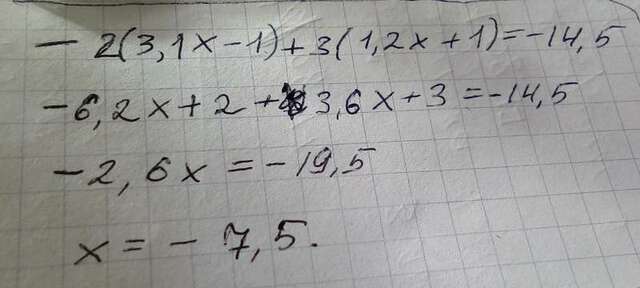 - 2(3,1x-1)+3(1,2x+1)=-14,5
-6,2x+2+3,6x+3=-14,5
-2,6x=-19,5
x=-7,5.